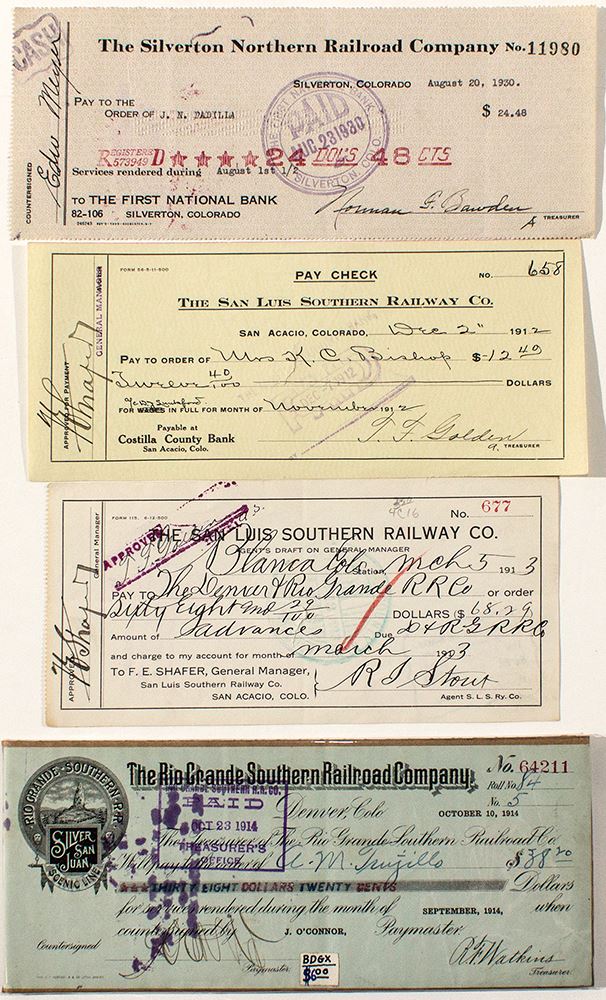 CASH
The Silverton Northern Railroad Company No. 11980
SILVERTON, COLORADO August 20, 1930.
PAY TO THE
ORDER OF J. N. PADILLA $ 24.48
THE FIRST NATIONAL BANK
PAID
AUG 23 1930
SILVERTON, COLO.
REGISTERED
573949 D ★★★★ 24 DOL'S 48 CTS
Services rendered during August 1st 1/2
TO THE FIRST NATIONAL BANK
82-106 SILVERTON, COLORADO
TREASURER
COUNTERSIGNED
FORM 56-5-11-500
PAY CHECK
NO. 658
THE SAN LUIS SOUTHERN RAILWAY CO.
SAN ACACIO, COLORADO, Dec 2" 1912
PAY TO ORDER OF Mrs K. C. Bishop $-12 40
Twelve 40/100 DOLLARS
FOR WAGES IN FULL FOR MONTH OF November 1912
Payable at
Costilla County Bank
San Acacio, Colo.
T. F. Golden
A. TREASURER
APPROVED FOR PAYMENT
GENERAL MANAGER
FORM 115. 6-12-500
No. 677
THE SAN LUIS SOUTHERN RAILWAY CO.
AGENT'S DRAFT ON GENERAL MANAGER
APPROVED
Blanca Colo Station, Mch 5 1913
PAY TO The Denver & Rio Grande RR Co or order
Sixty Eight and 29/100 DOLLARS ($ 68.29
Amount of advances Due D & R G RR Co
and charge to my account for month of March 1913
To F. E. SHAFER, General Manager,
San Luis Southern Railway Co.
SAN ACACIO, COLO.
R J Stout
Agent S. L. S. Ry. Co.
APPROVED
General Manager
RIO GRANDE SOUTHERN R.R.
SILVER SAN JUAN
SCENIC LINE
The Rio Grande Southern Railroad Company,
No. 64211
Roll No. 84
No. 5
Denver, Colo OCTOBER 10, 1914
RIO GRANDE SOUTHERN R.R. CO.
PAID
OCT 23 1914
TREASURER'S
OFFICE
The Rio Grande Southern Railroad Co.
Will pay to the order of A. M. Trujillo $38 20
★★★THIRTY EIGHT DOLLARS TWENTY CENTS Dollars
for services rendered during the month of SEPTEMBER, 1914, when
countersigned by J. O'CONNOR, Paymaster
Countersigned
Paymaster.
R F Watkins
Treasurer.
BDGX